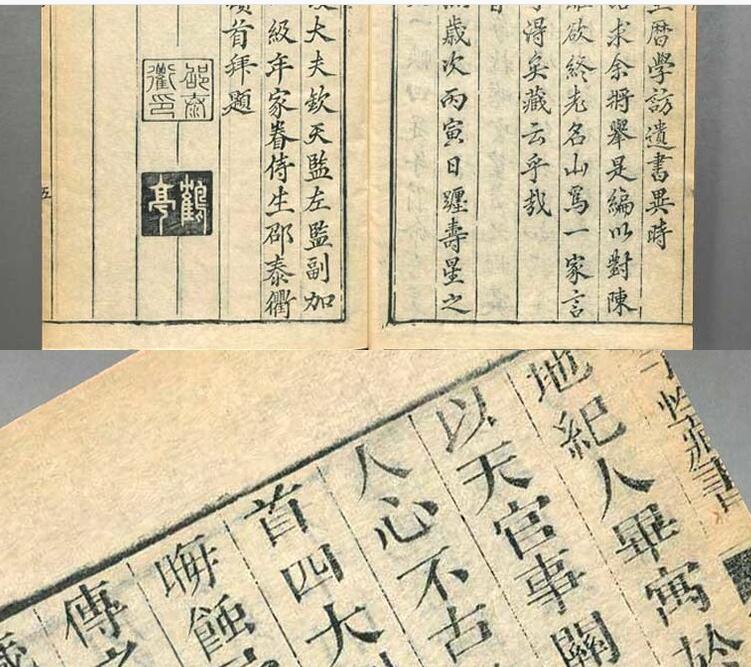 曆學訪遺書異時
求余將舉是編以對陳
欲終老名山爲一家言
得矣藏云乎哉
歲次丙寅日躔壽星之
大夫欽天監左監副加
級年家眷侍生邵泰衢
頓首拜題
邵泰衢印
鶴亭
五
地紀人畢寓於
以天官事關
人心不古
首四大
晦蝕
傳之